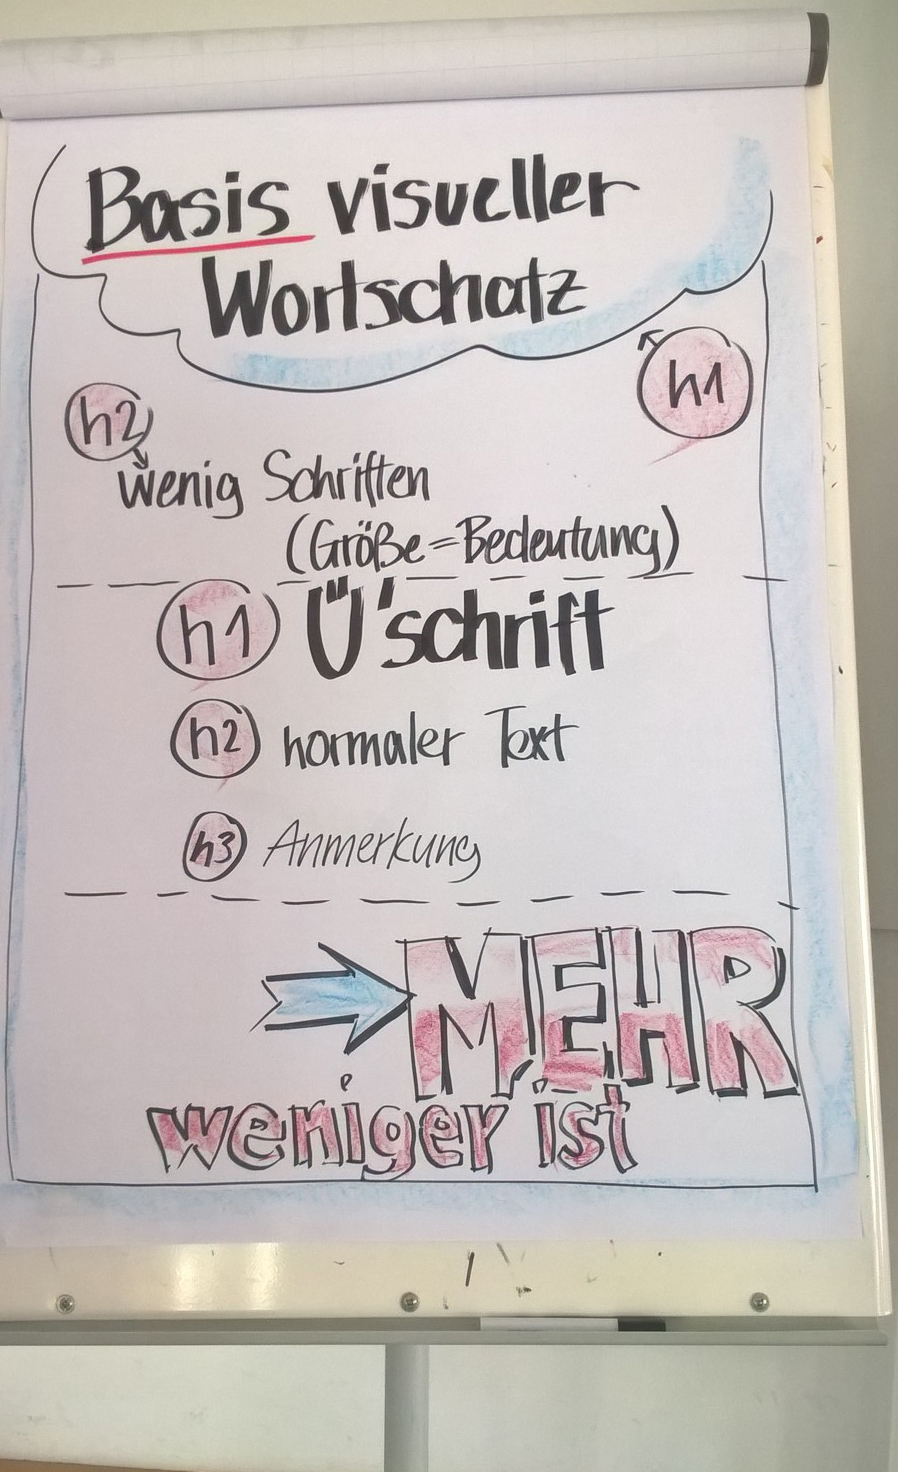 Basis visueller
Wortschatz
h1
h2
wenig Schriften
(Größe=Bedeutung)
h1 Ü'schrift
h2 normaler Text
h3 Anmerkung
MEHR
weniger ist